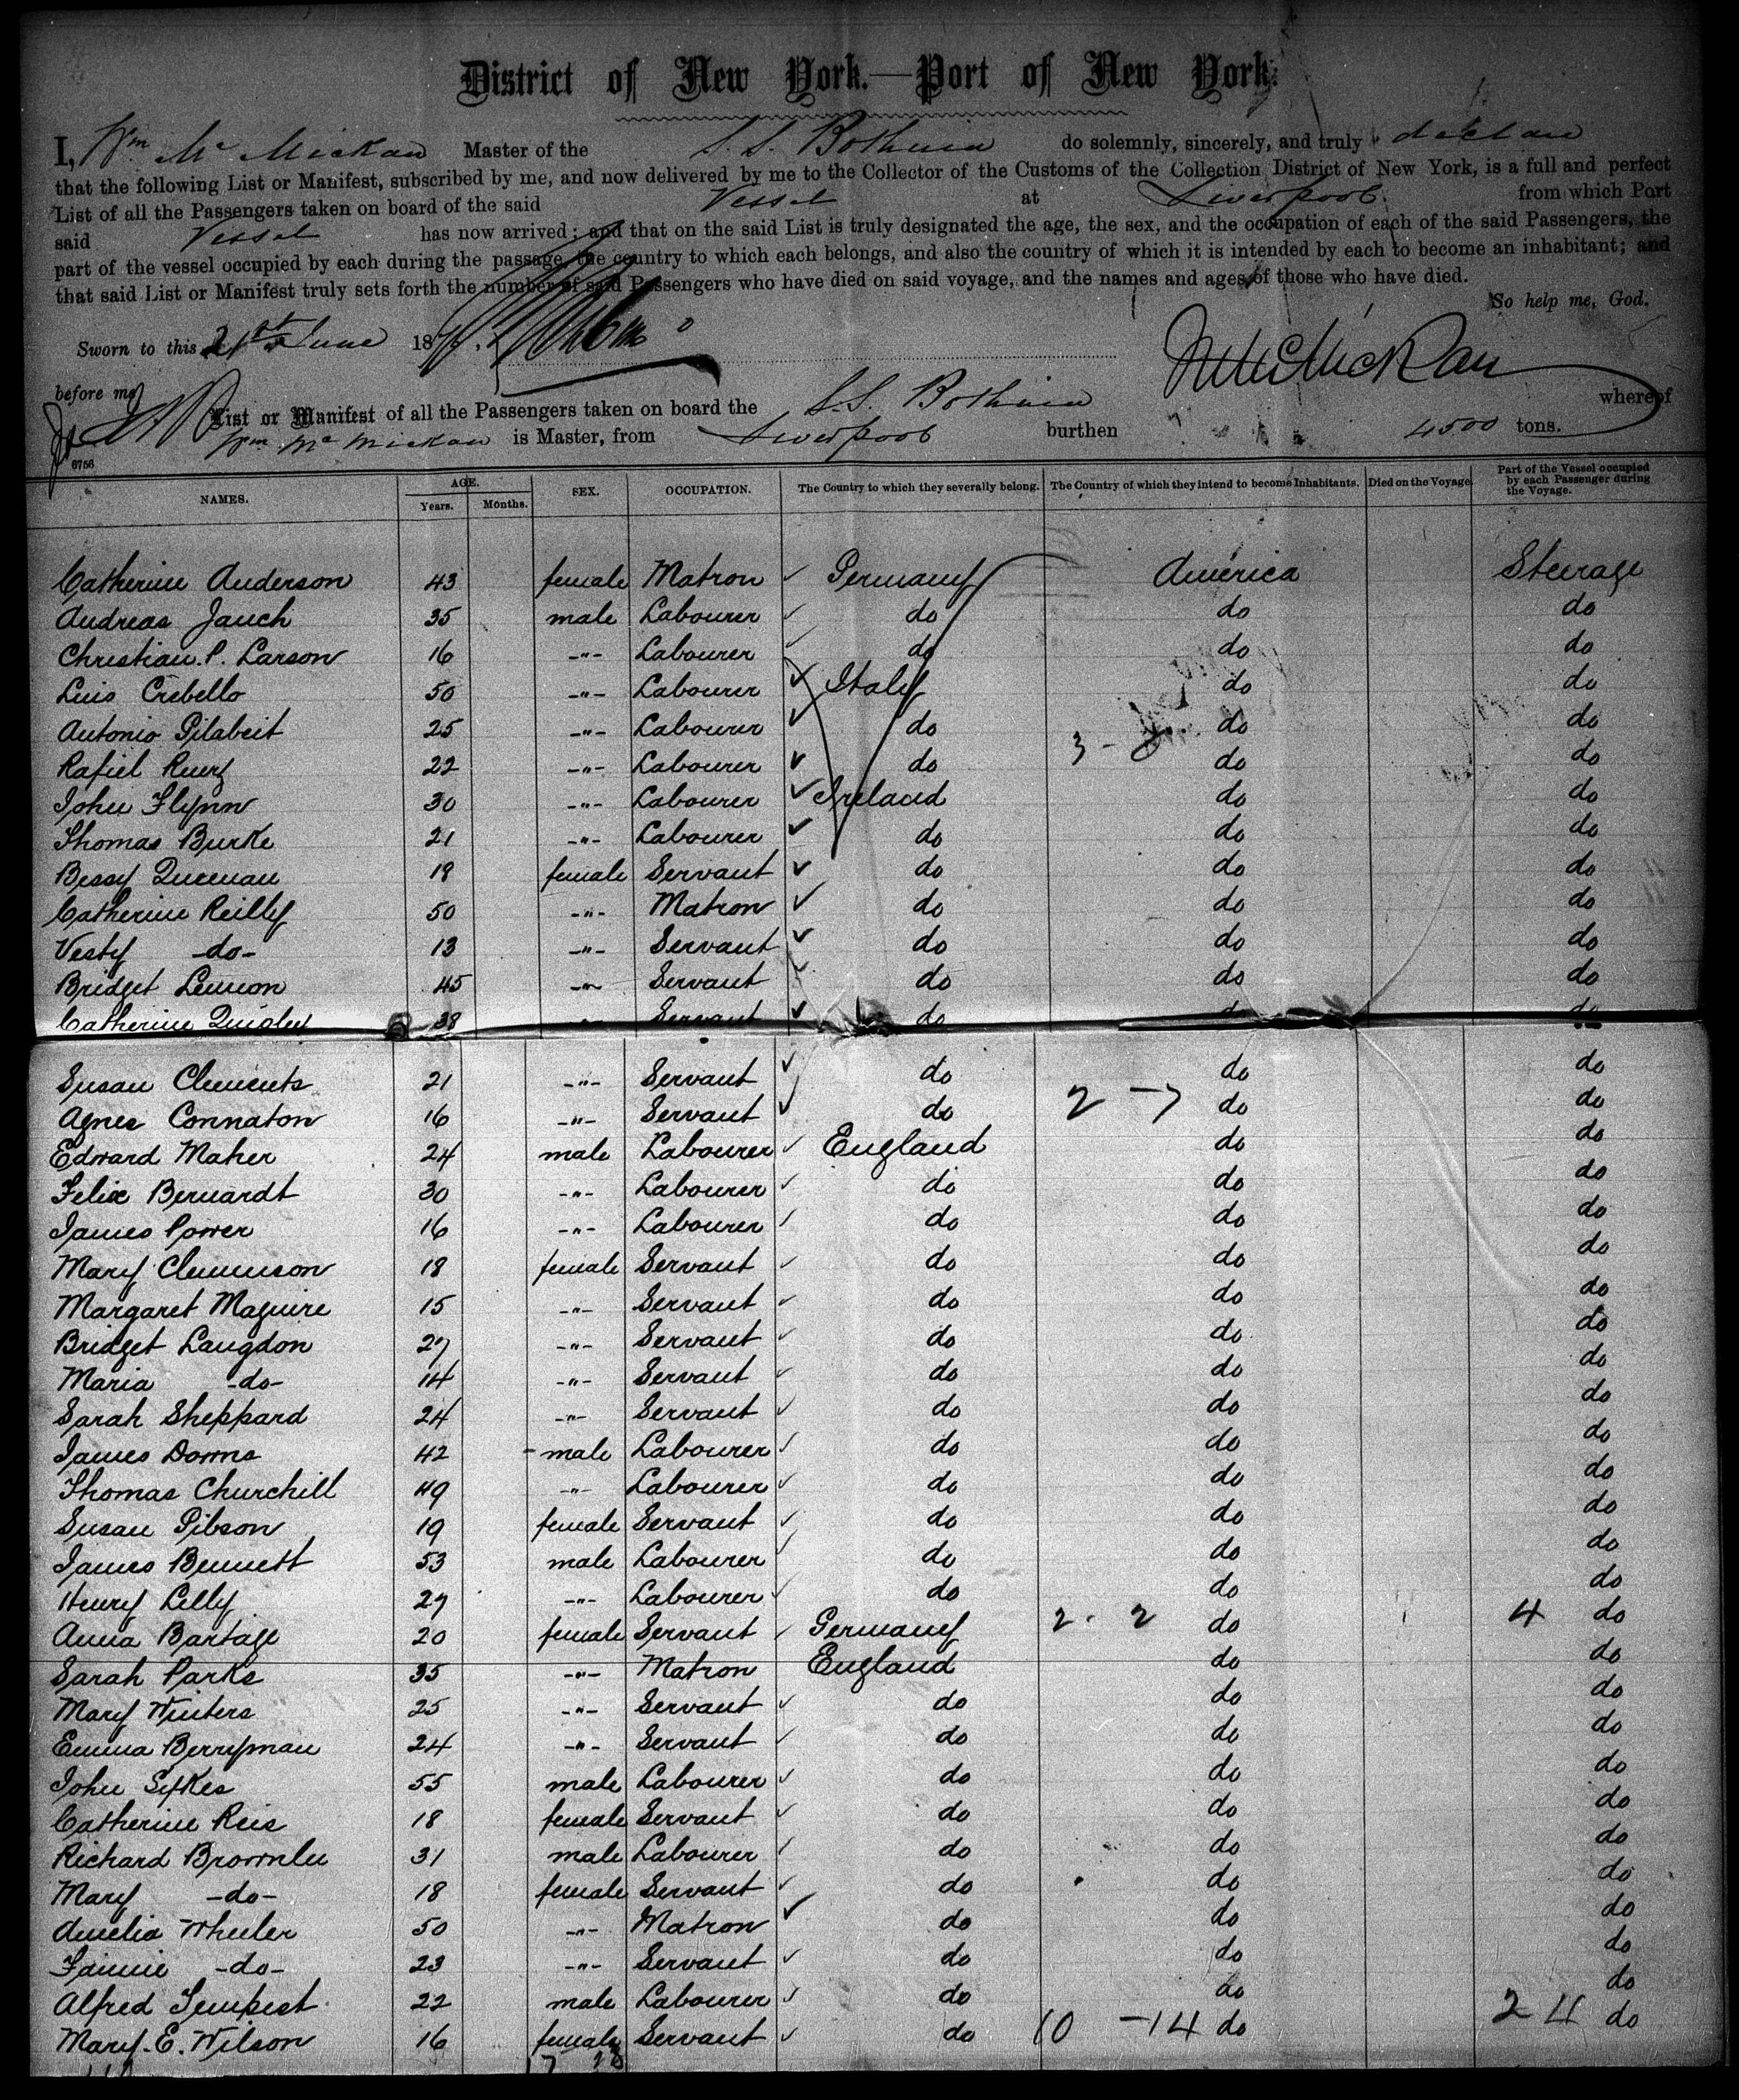 District of New York.—Port of New York.
I, Wm McMickan Master of the S.S. Bothnia do solemnly, sincerely, and truly declare
that the following List or Manifest, subscribed by me, and now delivered by me to the Collector of the Customs of the Collection District of New York, is a full and perfect
List of all the Passengers taken on board of the said Vessel at Liverpool from which Port
said Vessel has now arrived; and that on the said List is truly designated the age, the sex, and the occupation of each of the said Passengers, the
part of the vessel occupied by each during the passage, the country to which each belongs, and also the country of which it is intended by each to become an inhabitant; and
that said List or Manifest truly sets forth the number of said Passengers who have died on said voyage, and the names and ages of those who have died.
So help me, God.
Sworn to this 21st June 187
WMcMickan
before me
List or Manifest of all the Passengers taken on board the S.S. Bothnia whereof
Wm McMickan is Master, from Liverpool burthen 4500 tons.
6756
NAMES. AGE. Years. Months. SEX. OCCUPATION. The Country to which they severally belong. The Country of which they intend to become Inhabitants. Died on the Voyage. Part of the Vessel occupied by each Passenger during the Voyage.
Catherine Anderson 43 female Matron Germany America Steerage
Andreas Jauch 35 male Labourer do do do
Christian. P. Larson 16 -"- Labourer do do do
Luis Crebello 50 -"- Labourer Italy do do
Antonio Gilabeit 25 -"- Labourer do do do
Rafiel Ruez 22 -"- Labourer do 3 - do do
John Flynn 30 -"- Labourer Ireland do do
Thomas Burke 21 -"- Labourer do do do
Bessy 19 female Servant do do do
Catherine Reilly 50 -"- Matron do do do
Vesty -do- 13 -"- Servant do do do
Bridget Lennon 45 -"- Servant do do do
Catherine Quigley 38 -"- Servant do do do
Susan Clements 21 -"- Servant do do do
Agnes Connaton 16 -"- Servant do 2 - 7 do do
Edward Maher 24 male Labourer England do do
Felix Bernardt 30 -"- Labourer do do do
James Power 16 -"- Labourer do do do
Mary Clemmson 18 female Servant do do do
Margaret Maguire 15 -"- Servant do do do
Bridget Langdon 27 -"- Servant do do do
Maria -do- 14 -"- Servant do do do
Sarah Sheppard 24 -"- Servant do do do
James Downs 42 male Labourer do do do
Thomas Churchill 49 -"- Labourer do do do
Susan Gibson 19 female Servant do do do
James Bennett 53 male Labourer do do do
Henry Lilly 27 -"- Labourer do do do
Anna Bartage 20 female Servant Germany 2 . 2 do 4 do
Sarah Parks 35 -"- Matron England do do
Mary Winters 25 -"- Servant do do do
Emma Berryman 24 -"- Servant do do do
John Sykes 55 male Labourer do do do
Catherine Reis 18 female Servant do do do
Richard Brownlee 31 male Labourer do do do
Mary -do- 18 female Servant do do do
Amelia Wheeler 50 -"- Matron do do do
Fannie -do- 23 -"- Servant do do do
Alfred Tempest 22 male Labourer do do do
Mary. E. Wilson 16 female Servant do 10 - 14 do 24 do